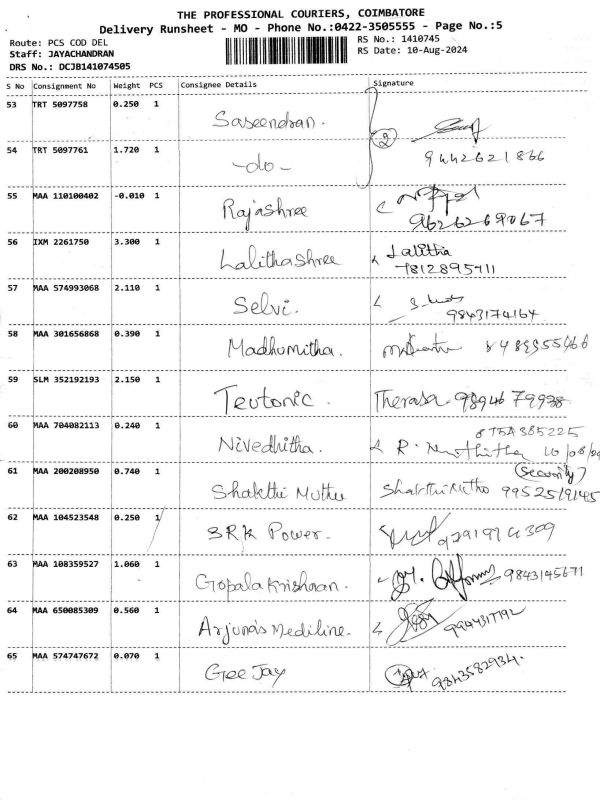 THE PROFESSIONAL COURIERS, COIMBATORE
Delivery Runsheet - MO - Phone No.:0422-3505555 - Page No.:5
Route: PCS COD DEL
Staff: JAYACHANDRAN
DRS No.: DCJB141074505
RS No.: 1410745
RS Date: 10-Aug-2024
S No Consignment No Weight PCS Consignee Details Signature
53 TRT 5097758 0.250 1 Saseendran.
54 TRT 5097761 1.720 1 -do- 2 9442621866
55 MAA 110100402 -0.010 1 Rajashree 9626269067
56 IXM 2261750 3.300 1 Lalithashree Lalitha
7812895711
57 MAA 574993068 2.110 1 Selvi. 9843174164
58 MAA 301656868 0.390 1 Madhumitha.
59 SLM 352192193 2.150 1 Teutonic. Therasa 9894679938
60 MAA 704082113 0.240 1 Nivedhitha. R.
61 MAA 200208950 0.740 1 Shakthi Muthu (Security)
62 MAA 104523548 0.250 1 SRK Power.
63 MAA 108359527 1.060 1 Gopala Krishnan. 9843145671
64 MAA 650085309 0.560 1 Arjuna's Mediline.
65 MAA 574747672 0.070 1 Gee Jay 9843582934.